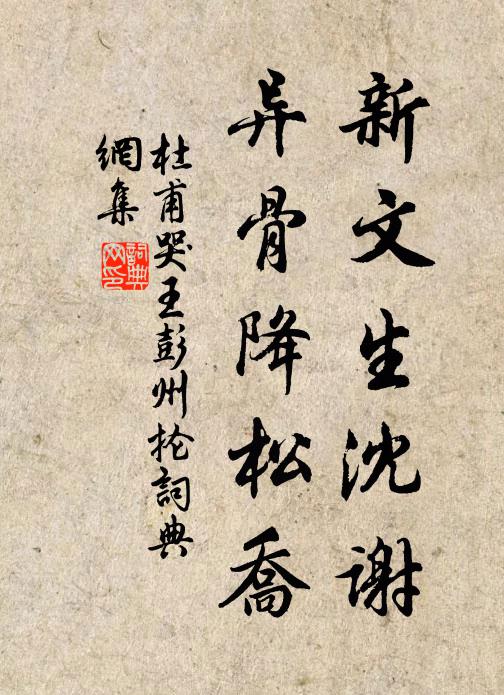 新文生沈谢
异骨降松喬
杜甫哭王彭州抡詞典
網集
詞典网印